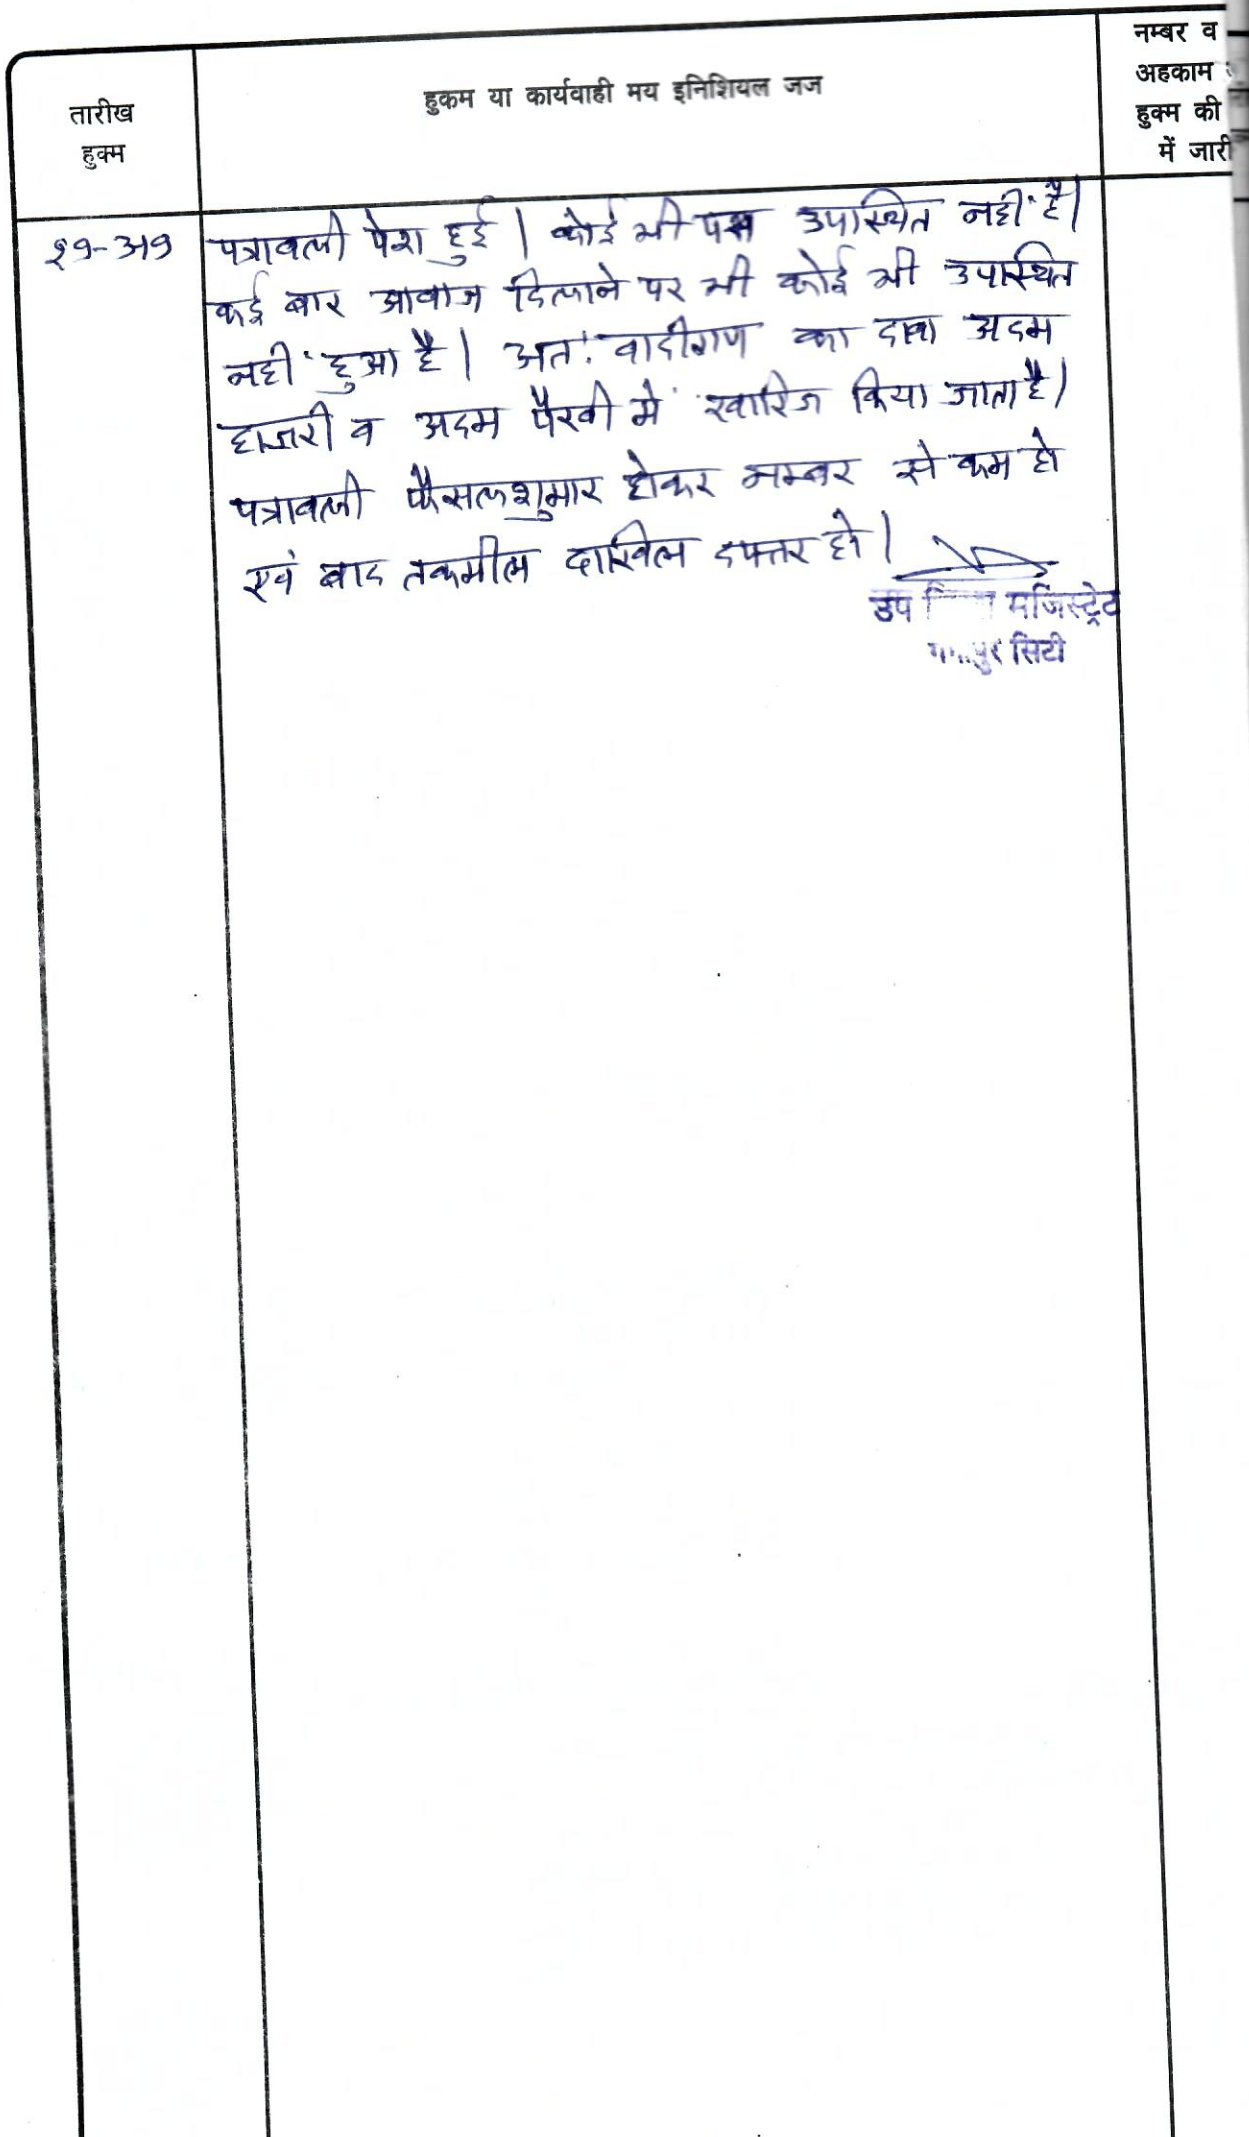 तारीख
हुक्म
हुकम या कार्यवाही मय इनिशियल जज
नम्बर व
अहकाम
हुक्म की
में जारी
पत्रावली पेश हुई। कोई भी पक्ष उपस्थित नहीं है।
कई बार आवाज दिलाने पर भी कोई भी उपस्थित
नहीं हुआ है। अतः वादीगण का दावा अदम
हाजरी व अदम पैरवी में खारिज किया जाता है।
पत्रावली फैसलशुमार होकर नम्बर से कम हो
एवं बाद तकमील दाखिल दफ्तर हो।
उप मजिस्ट्रेट
सिटी